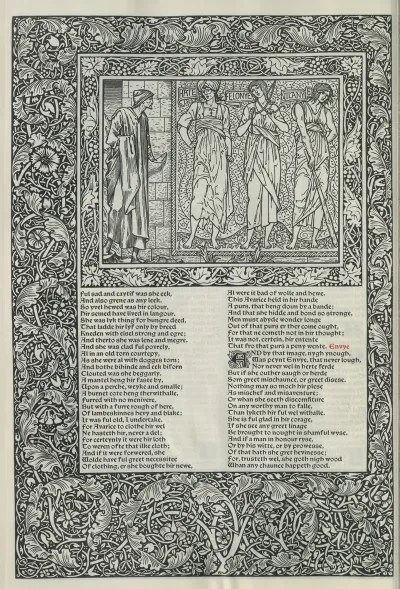 HATE
FELONYE
ful sad and caytif was she eek,
And also grene as any leek.
So yvel hewed was hir colour,
hir semed have lived in langour.
She was lyk thing for hungre deed,
That ladde hir lyf only by breed
Kneden with eisel strong and egre;
And therto she was lene and megre.
And she was clad ful povrely,
Al in an old torn courtepy,
As she were al with dogges torn;
And bothe bihinde and eek biforn
Clouted was she beggarly.
A mantel heng hir faste by,
Upon a perche, weyke and smalle;
A burnet cote heng therwithalle,
Furred with no menivere,
But with a furre rough of here,
Of lambeskinnes hevy and blake;
It was ful old, I undertake.
For Avarice to clothe hir wel
Ne hasteth hir, never a del;
For certeynly it were hir loth
To weren ofte that ilke cloth;
And if it were forwered, she
Wolde have ful greet necessitee
Of clothing, er she boughte hir newe,
Al were it bad of wolle and hewe.
This Avarice held in hir hande
A purs, that heng doun by a bande;
And that she hidde and bond so stronge,
Men must abyde wonder longe
Out of that purs er ther come ought,
For that ne cometh not in hir thought;
It was not, certein, hir entente
That fro that purs a peny wente. Envye
AND by that image, nygh ynough,
Was peynt Envye, that never lough,
Nor never wel in herte ferde
But if she outher saugh or herde
Som greet mischaunce, or greet disese.
Nothing may so moch hir plese
As mischef and misaventure;
Or whan she seeth discomfiture
On any worthy man to falle,
Than lyketh hir ful wel withalle.
She is ful glad in hir corage,
If she see any greet linage
Be brought to nought in shamful wyse.
And if a man in honour ryse,
Or by his witte, or by prowesse,
Of that hath she gret hevinesse;
For, trusteth wel, she goth nigh wood
Whan any chaunce happeth good.